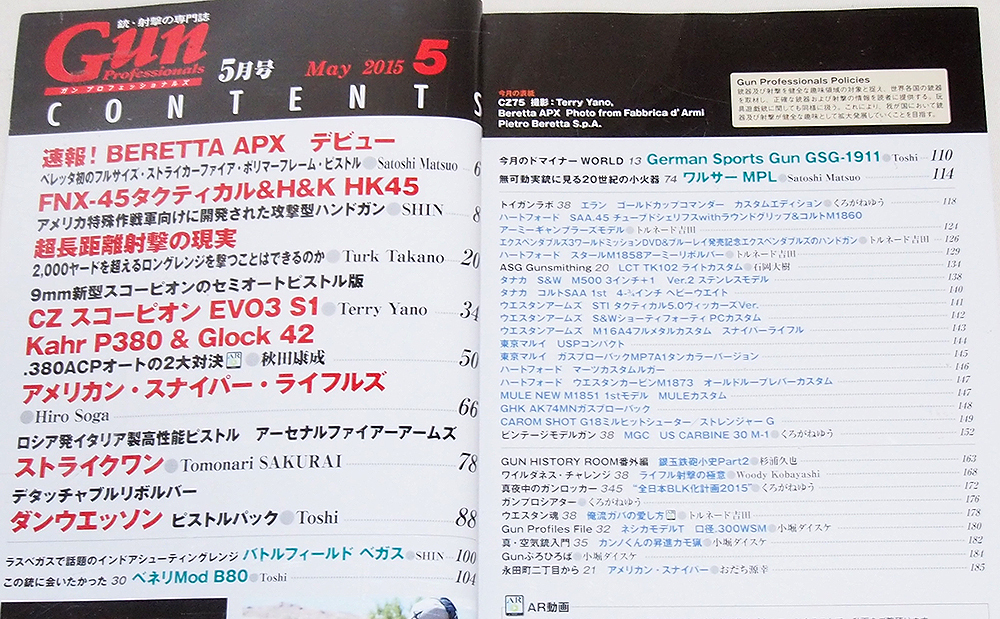 銃・射撃の専門誌
Gun
Professionals
ガン プロフェッショナルズ
5月号 May 2015 5
CONTENTS
速報！BERETTA APX デビュー
ベレッタ初のフルサイズ・ストライカーファイア・ポリマーフレーム・ピストル●Satoshi Matsuo 6
FNX-45タクティカル&H&K HK45
アメリカ特殊作戦軍向けに開発された攻撃型ハンドガン●SHIN 8
超長距離射撃の現実
2,000ヤードを超えるロングレンジを撃つことはできるのか●Turk Takano 20
9mm新型スコーピオンのセミオートピストル版
CZ スコーピオン EVO3 S1●Terry Yano 34
Kahr P380 & Glock 42
.380ACPオートの2大対決 AR ●秋田康成 50
アメリカン・スナイパー・ライフルズ
●Hiro Soga 66
ロシア発イタリア製高性能ピストル アーセナルファイアーアームズ
ストライクワン●Tomonari SAKURAI 78
デタッチャブルリボルバー
ダンウエッソン ピストルパック●Toshi 88
ラスベガスで話題のインドアシューティングレンジ バトルフィールド ベガス●SHIN 100
この銃に会いたかった 30 ベネリMod B80●Toshi 104
今月の表紙
CZ75 撮影：Terry Yano,
Beretta APX Photo from Fabbrica d' Armi
Pietro Beretta S.p.A.
Gun Professionals Policies
銃器及び射撃を健全な趣味領域の対象と捉え、世界各国の銃器
を取材し、正確な銃器および射撃の情報を読者に提供する。玩
具遊戯銃に関しても同様に扱う。これにより、我が国において銃
器及び射撃が健全な趣味として拡大発展していくことを目指す。
今月のドマイナー WORLD 13 German Sports Gun GSG-1911●Toshi 110
無可動実銃に見る20世紀の小火器 74 ワルサー MPL●Satoshi Matsuo 114
トイガンラボ 38 エラン ゴールドカップコマンダー カスタムエディション●くろがねゆう 118
ハートフォード SAA.45 チューブドシェリフスwithラウンドグリップ&コルトM1860
アーミーキャンブラーズモデル●トルネード吉田 124
エクスペンダブルズ3ワールドミッションDVD&ブルーレイ発売記念エクスペンダブルズのハンドガン●トルネード吉田 126
ハートフォード スタールM1858アーミーリボルバー●トルネード吉田 129
ASG Gunsmithing 20 LCT TK102 ライトカスタム●石岡大樹 134
タナカ S&W M500 3インチ+1 Ver.2 ステンレスモデル 138
タナカ コルトSAA 1st 4-3/4インチ ヘビーウエイト 140
ウエスタンアームズ STI タクティカル5.0ヴィッカーズVer. 141
ウエスタンアームズ S&Wショーティフォーティ PCカスタム 142
ウエスタンアームズ M16A4フルメタルカスタム スナイパーライフル 143
東京マルイ USPコンパクト 144
東京マルイ ガスブローバックMP7A1タンカラーバージョン 145
ハートフォード マーツカスタムルガー 146
ハートフォード ウエスタンカービンM1873 オールドループレバーカスタム 147
MULE NEW M1851 1stモデル MULEカスタム 147
GHK AK74MNガスブローバック 148
CAROM SHOT G18ミルヒットシューター／ストレンジャー G 149
ビンテージモデルガン 38 MGC US CARBINE 30 M-1●くろがねゆう 152
GUN HISTORY ROOM番外編 銀玉鉄砲小史Part2●杉浦久也 163
ワイルダネス・チャレンジ 38 ライフル射撃の極意●Woody Kobayashi 168
真夜中のガンロッカー 345 "全日本BLK化計画2015"●くろがねゆう 172
ガンプロシアター●くろがねゆう 176
ウエスタン魂 38 俺流ガバの愛し方 ●トルネード吉田 178
Gun Profiles File 32 ネシカモデルT 口径.300WSM●小堀ダイスケ 180
真・空気銃入門 35 カンノくんの昇進カモ猟●小堀ダイスケ 182
Gunぷろひろば●小堀ダイスケ 184
永田町二丁目から 21 アメリカン・スナイパー●おだち源幸 185
AR AR動画